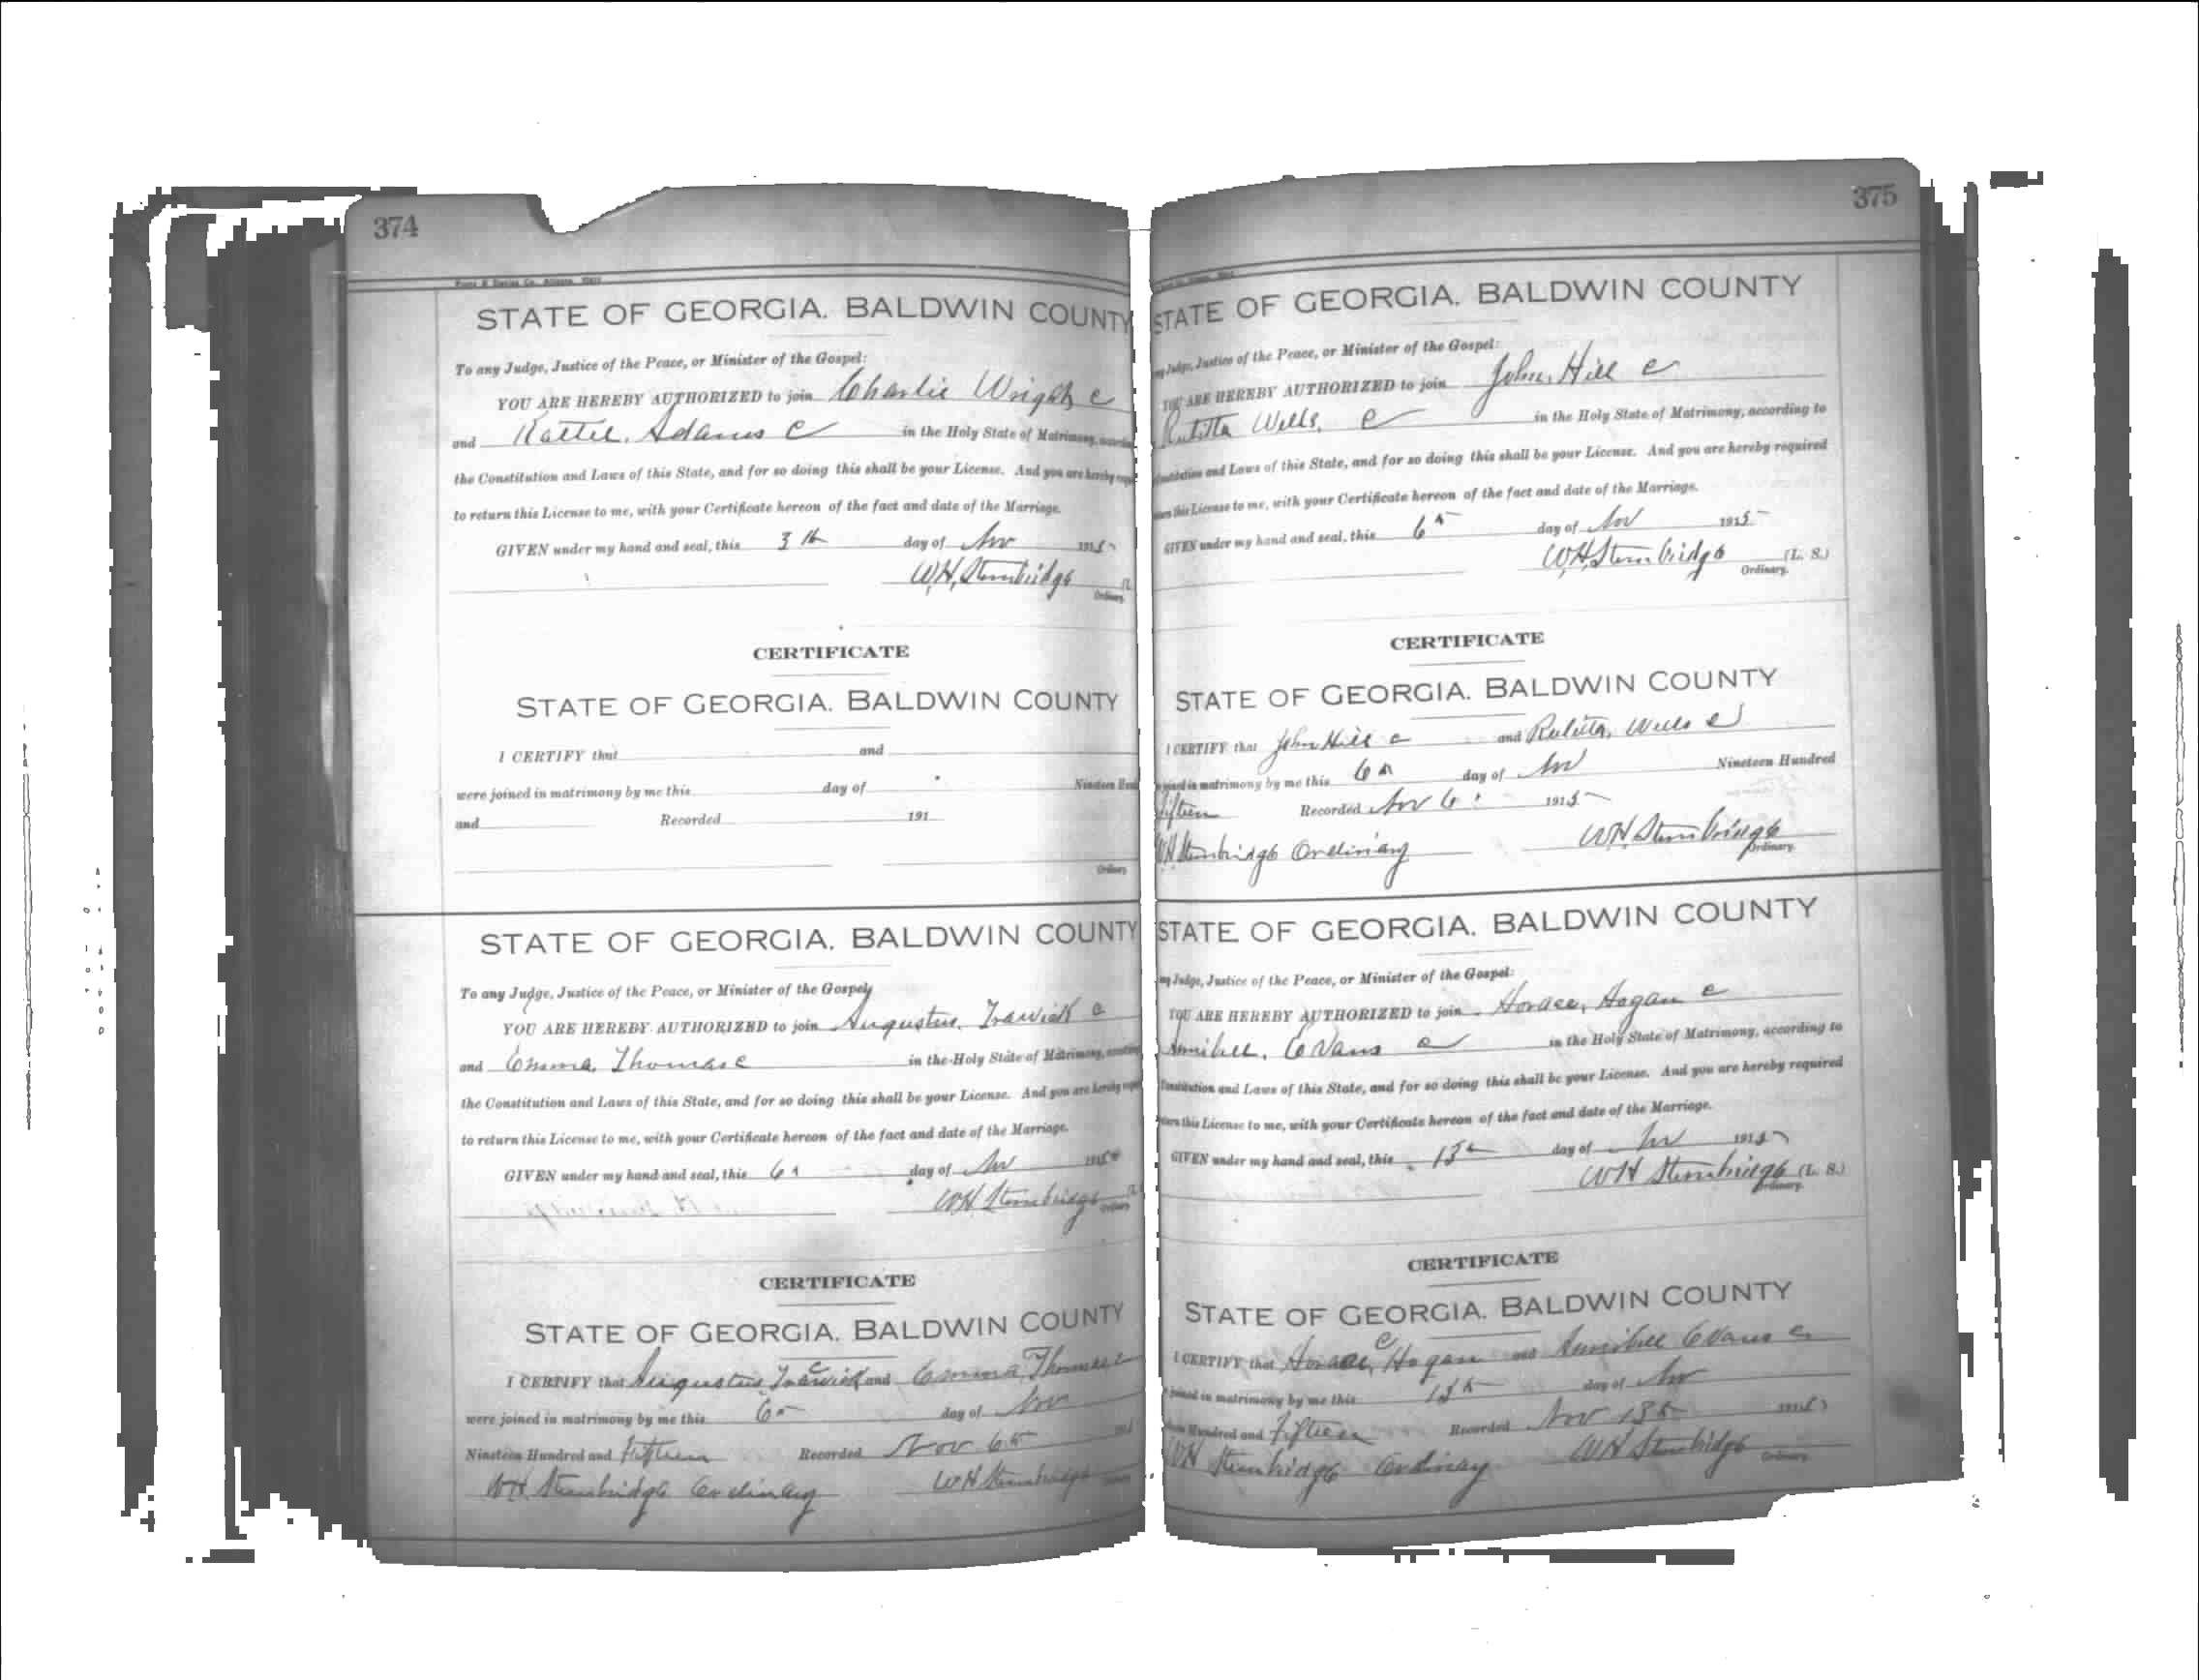 374
STATE OF GEORGIA. BALDWIN COUNTY
To any Judge, Justice of the Peace, or Minister of the Gospel:
YOU ARE HEREBY AUTHORIZED to join Charlie Wright c
and Adams c in the Holy State of Matrimony,
the Constitution and Laws of this State, and for so doing this shall be your License. And you are hereby
to return this License to me, with your Certificate hereon of the fact and date of the Marriage.
GIVEN under my hand and seal, this 3 day of Nov 1915
W.H. Stembridge
Ordinary.
CERTIFICATE
STATE OF GEORGIA. BALDWIN COUNTY
I CERTIFY that and
were joined in matrimony by me this day of Nineteen
and Recorded 191
Ordinary
STATE OF GEORGIA. BALDWIN COUNTY
To any Judge, Justice of the Peace, or Minister of the Gospel:
YOU ARE HEREBY AUTHORIZED to join Augustus, Trawick c
and Emma, Thomas c in the Holy State of Matrimony,
the Constitution and Laws of this State, and for so doing this shall be your License. And you are hereby
to return this License to me, with your Certificate hereon of the fact and date of the Marriage.
GIVEN under my hand and seal, this 6 day of Nov 1915
W.H. Stembridge
Ordinary
CERTIFICATE
STATE OF GEORGIA. BALDWIN COUNTY
I CERTIFY that Augustus, Trawick c and Emma, Thomas c
were joined in matrimony by me this 6 day of Nov
Nineteen Hundred and Fifteen Recorded Nov 6
W.H. Stembridge Ordinary W.H. Stembridge
375
STATE OF GEORGIA. BALDWIN COUNTY
Judge, Justice of the Peace, or Minister of the Gospel:
YOU ARE HEREBY AUTHORIZED to join John, Hill c
Wells, c in the Holy State of Matrimony, according to
and Laws of this State, and for so doing this shall be your License. And you are hereby required
this License to me, with your Certificate hereon of the fact and date of the Marriage.
GIVEN under my hand and seal, this 6 day of Nov 1915
W.H. Stembridge (L. S.)
Ordinary.
CERTIFICATE
STATE OF GEORGIA. BALDWIN COUNTY
I CERTIFY that John Hill c and Wells c
joined in matrimony by me this 6 day of Nov Nineteen Hundred
fifteen Recorded Nov 6 1915
W.H. Stembridge Ordinary W.H. Stembridge
Ordinary.
STATE OF GEORGIA. BALDWIN COUNTY
Judge, Justice of the Peace, or Minister of the Gospel:
YOU ARE HEREBY AUTHORIZED to join Horace, Hogan c
Evans c in the Holy State of Matrimony, according to
Constitution and Laws of this State, and for so doing this shall be your License. And you are hereby required
this License to me, with your Certificate hereon of the fact and date of the Marriage.
GIVEN under my hand and seal, this 13 day of Nov 1915
W H Stembridge (L. S.)
Ordinary.
CERTIFICATE
STATE OF GEORGIA. BALDWIN COUNTY
I CERTIFY that Horace, Hogan c and Evans c
joined in matrimony by me this 13 day of Nov
Hundred and Fifteen Recorded Nov 13 1915
W H Stembridge Ordinary W H Stembridge
Ordinary.